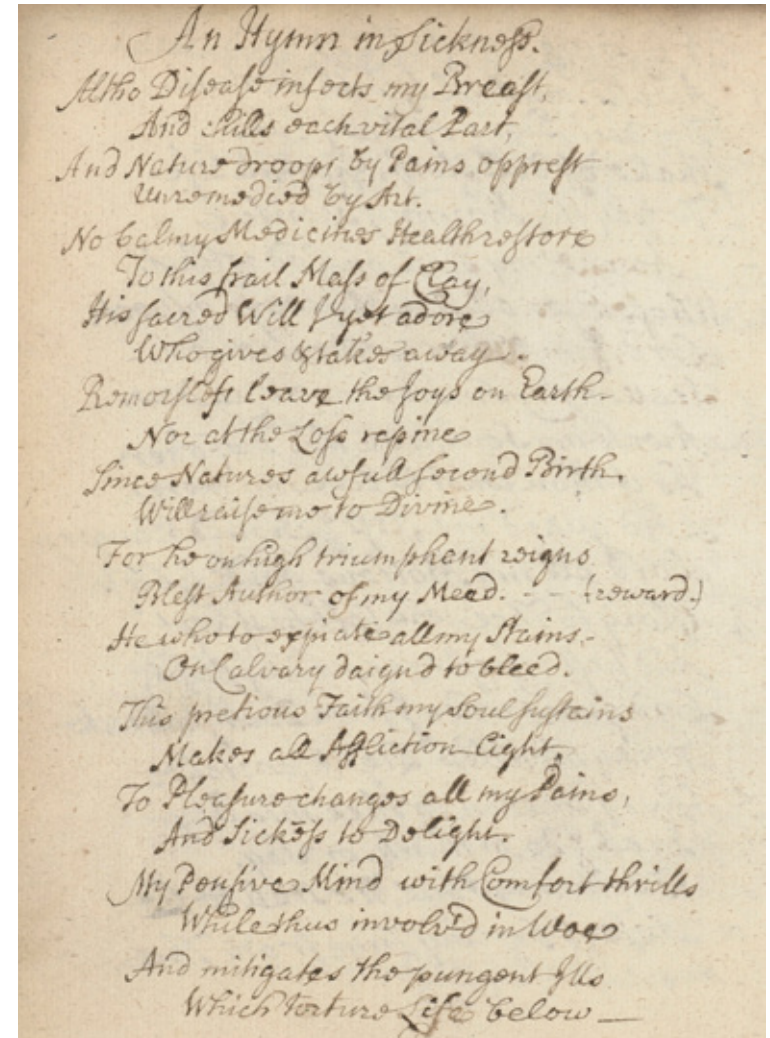 An Hymn in Sickness.
Altho Disease infects my Breast,
And chills each vital Part,
And Nature droops by Pains opprest
Unremedied by Art.
No balmy Medicines Health restore
To this frail Mass of Clay,
His sacred Will I yet adore
Who gives & takes away.
Remorsless leave the Joys on Earth
Nor at the Loss repine
Since Natures awfull second Birth.
Will raise me to Divine.
For he on high triumphant reigns
Blest Author of my Meed. - - (reward.)
He who to expiate all my Stains
On Calvary daignd to bleed.
This pretious Faith my Soul sustains
Makes all Affliction Light.
To Pleasure changes all my Pains,
And Sickess to Delight.
My Pensive Mind with Comfort thrills
While thus involv'd in Woe
And mitigates the pungent Ills
Which torture Life below —